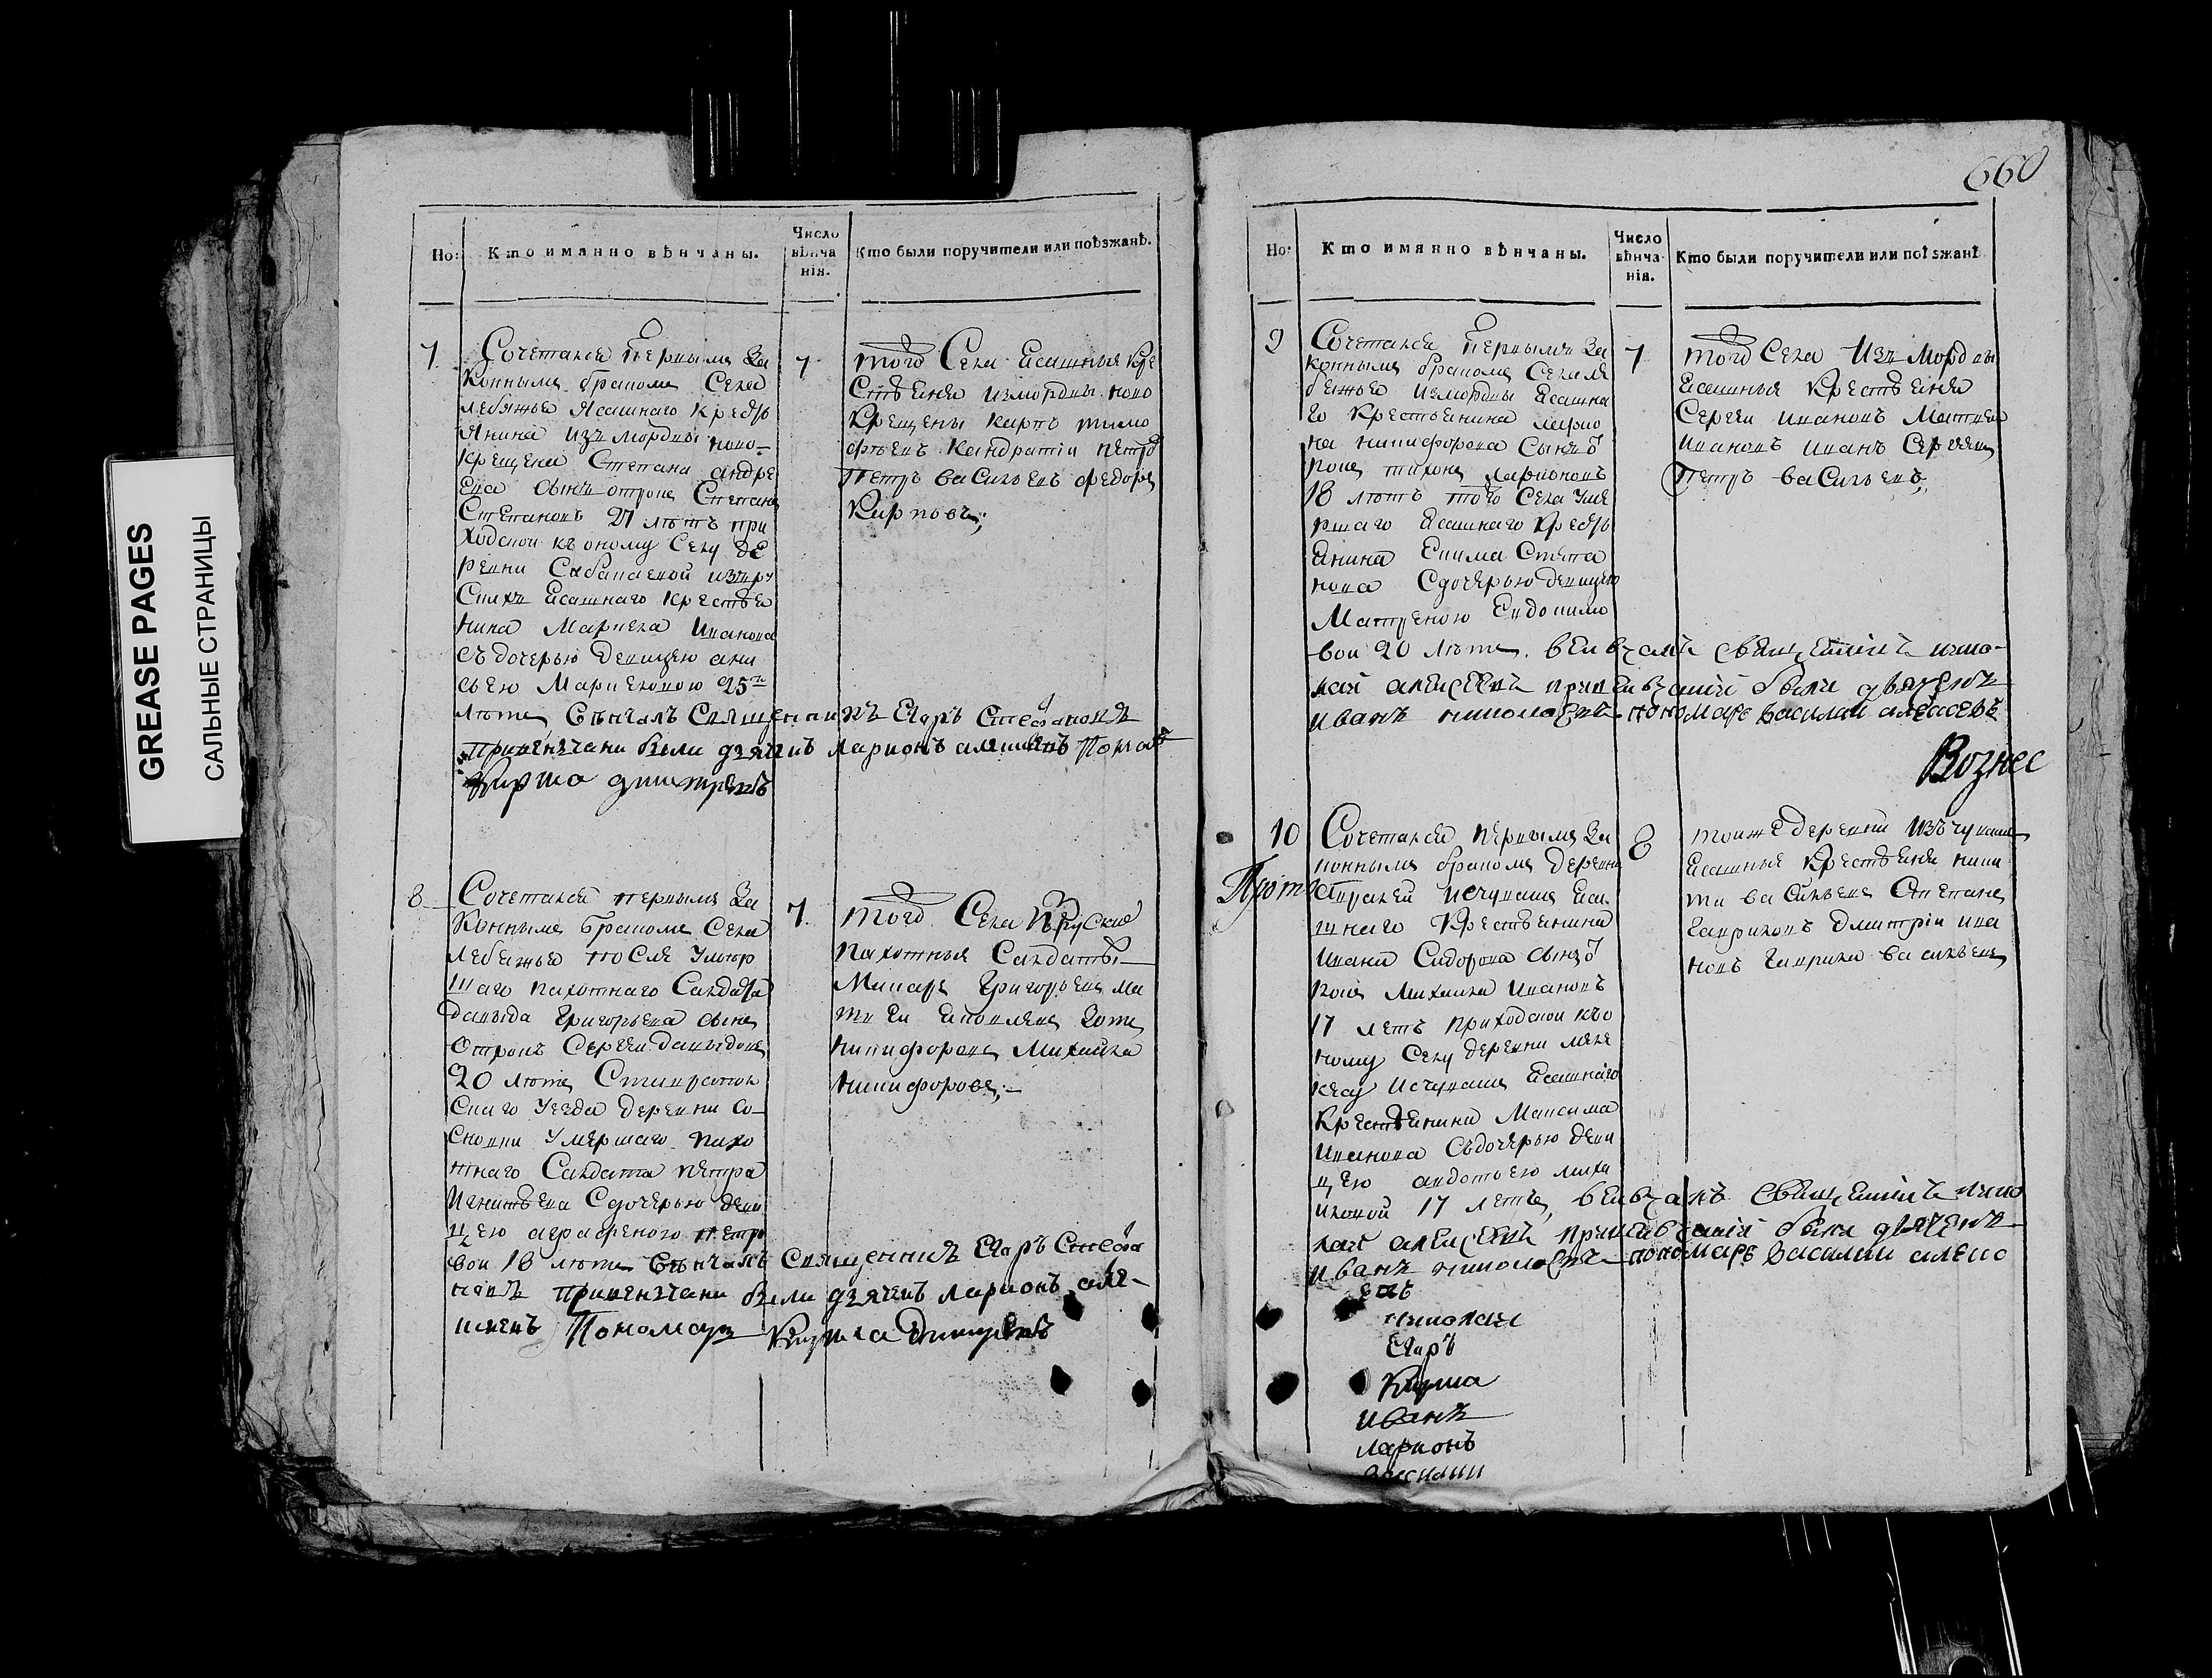 GREASE PAGES
САЛЬНЫЕ СТРАНИЦЫ
Но: Кто имянно вѣнчаны. Число вѣнча нія. Кто были поручители или поѣзжанѣ.
7. Сочетался первымъ за
коннымъ бракомъ Села
лебяжья Ясашнаго кресть
янина изъ мордвы ново-
крещена Степана андре
ева сынъ отрокъ Степанъ
Степановъ 21 лѣтъ при
ходской къ оному Селу де
ревни
Ясашнаго крестья
нина Иванова
съ дочерью девицею ани
сьею 25ти
лѣтъ, Венчалъ Священникъ Егаръ Стефановъ
привенчани были дьячекъ ларионъ Поном
Кирма дмитревъ
7 того Села Ясашныя кре
стьяня измордвы ново
крещены карпъ тимо
фѣевъ кандратіи петро
Петръ васильевъ федоръ
Карповъ;
8 Сочетался первымъ за
коннымъ бракомъ Села
лебяжья после умер
шаго пахотнаго Салдата
давыда Григорьева сынъ
отрокъ Сергеи давыдовъ
20 лѣтъ Ставропол
скаго уезда деревни со
сновки умершаго пахо
тнаго Салдата петра
Игнатьева Сдочерью деви
цею аграфеною петро
вои 18 лѣтъ Венчалъ Священникъ Егаръ Стефа
новъ привенчани были дьячекъ ларионъ але-
Пономарь Кирма Дмитревъ
7. того Села руские
пахотныя Салдаты
Макаръ Григорьевъ ма
тв ей Яковлевъ Зотъ
никифоровъ Михайла
никифоровъ;-
660
Но: Кто имянно вѣнчаны. Число вѣнча- нія. Кто были поручители или поѣзжанѣ.
9 Сочетался первымъ за
коннымъ бракомъ Села ле
бежья измордвы Ясашна
го крестьянина ларио
на никифорова Сынъ о
рокъ тихонъ ларионовъ
18 лѣтъ того Села уме
ршаго Ясашнаго кресть
янина Екима Степа
нова Сдочерью девицею
Матреною Евдокимо
вои 20 лѣтъ. венчалъ священникъ нико-
лаи алексеевъ при венчаніи были дьячекъ
иванъ николаевъ пономарь василии алексеевъ
7 того Села Изъ Мордвы
Ясашныя Крестьяня
Сергеи ивановъ Матвеи
ивановъ иванъ Сергеевъ
Петръ васильевъ;
Вознес
10 Сочетался первымъ за
коннымъ бракомъ деревни
изчувашъ Яса
шнаго Крестьянина
Ивана Сидорова сынъ о
рокъ Михаила ивановъ
17 летъ приходской къ о
ному Селу деревни
изчувашъ Ясашнаго
крестьянина Максима
Иванова Съдочерью деви
цею авдотьею
17 летъ, венчалъ священникъ нико
лаи алексеевъ при венчаніи были дьячекъ
иванъ николаевъ пономарь василии алексе
евъ
николаи
Егаръ
Кирма
иванъ
ларионъ
василии
8 тоиже деревни изъчувашъ
Ясашныя Крестьяня ники
та васильевъ Степанъ
Гавриловъ дмитріи ива
новъ Гаврила васильевъ